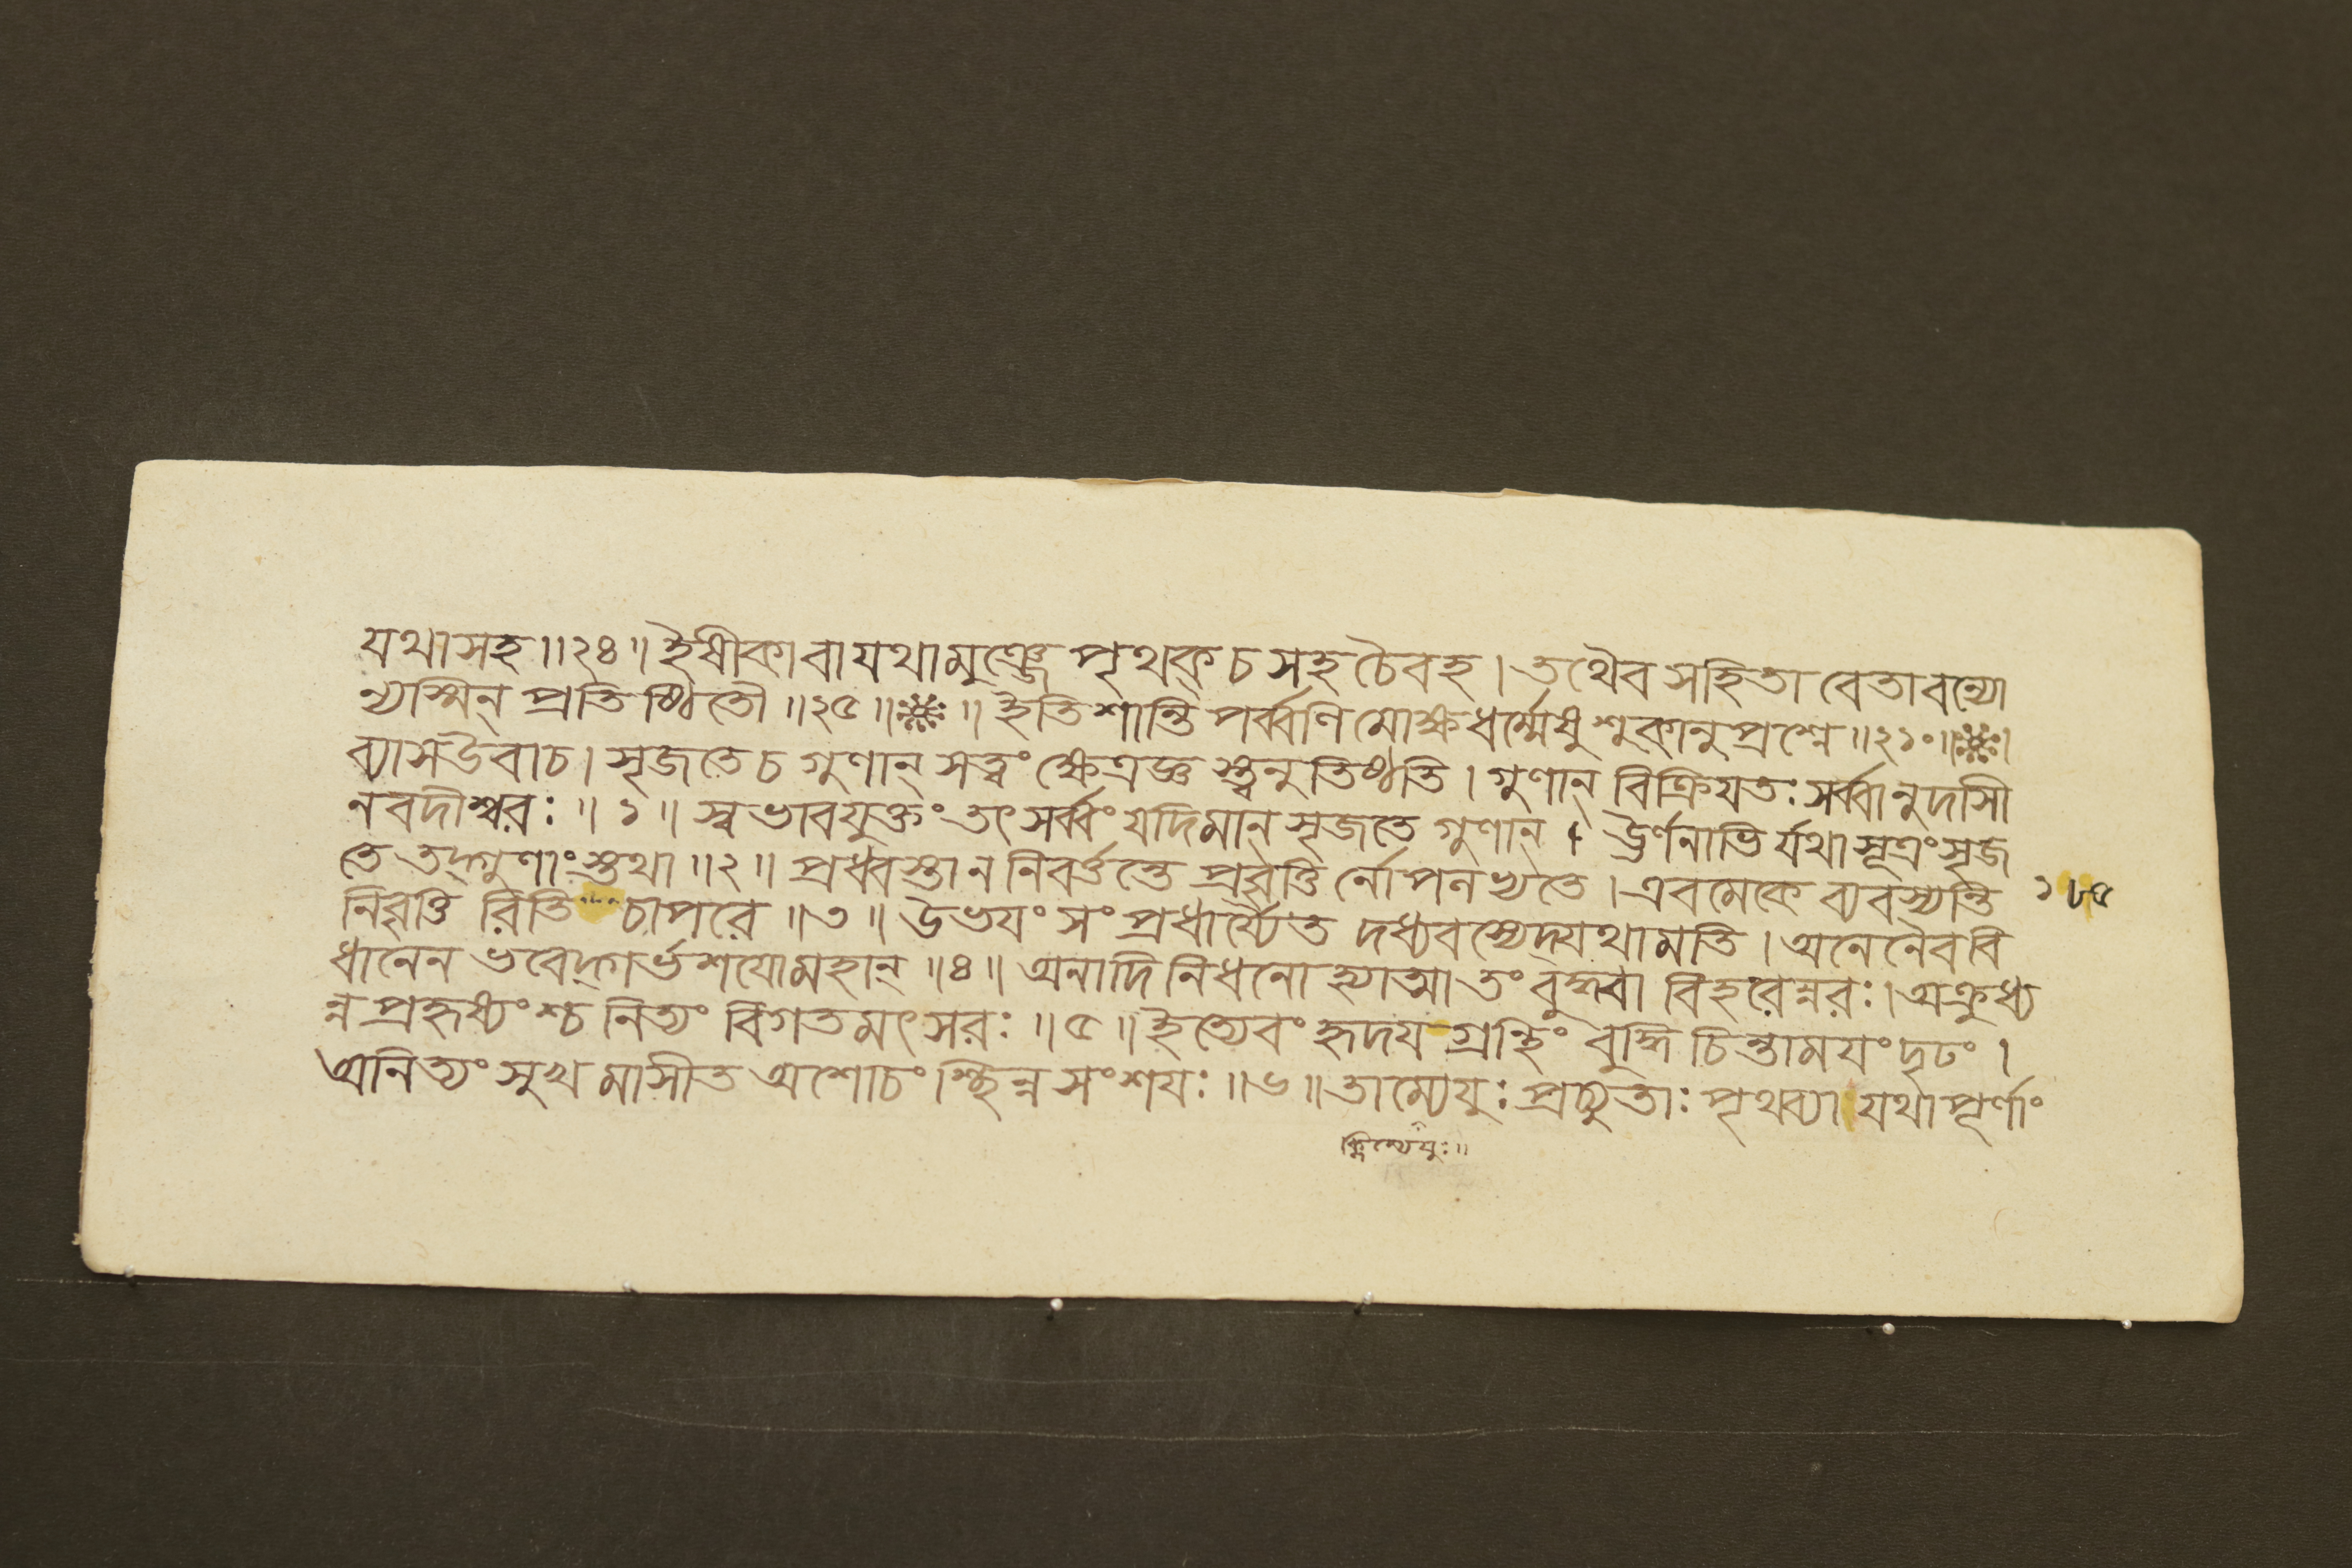 যথাসহ ॥২৪॥ ইষীকাবাযথামুঞ্জে পৃথক্চসহচৈবহ । তথৈবসহিতাবেতাবন্যো
ন্যস্মিন্ প্রতিষ্ঠিতৌ ॥২৫॥ ॥ ইতিশান্তিপর্ব্বণিমোক্ষধর্ম্মেষুশুকানুপ্রশ্নে ॥২১০॥
ব্যাসউবাচ । সৃজতেচগুণান্ সত্ত্বংক্ষেত্রজ্ঞস্ত্বনুতিষ্ঠতি । গুণান্ বিক্রিযতঃসর্ব্বানুদাসী
নবদীশ্বরঃ ॥১॥ স্বভাবযুক্তংতৎসর্ব্বংযদিমান্সৃজতে গুণান্ । ঊর্ণনাভির্যথাসূত্রংসৃজ
তে তদ্গুণাংস্তথা ॥২॥ প্রধ্বস্তাননিবর্ত্তন্তে প্রবৃত্তির্নোপলভ্যতে । এবমেকে ব্যবস্যন্তি
নিবৃত্তি রিতি চাপরে ॥৩॥ উভযংসংপ্রধার্য্যৈতদধ্যবস্যেদ্যথামতি । অনেনৈববি
ধানেন ভবেদ্গর্ভশযোমহান্ ॥৪॥ অনাদিনিধনোহ্যাত্মাতংবুদ্ধ্বা বিহরেন্নরঃ । অক্রুধ্য
ন্নপ্রহৃষ্যংশ্চনিত্যং বিগতমৎসরঃ ॥৫॥ ইত্যেবংহৃদযগ্রন্থিং বুদ্ধিচিন্তামযংদৃঢং ।
অনিত্যংসুখমাসীতঅশোচংশ্ছিন্নসংশযঃ ॥৬॥ তাম্যেযুঃ প্রচ্যুতাঃপৃথব্যা যথাপূর্ণাং
১৮৫